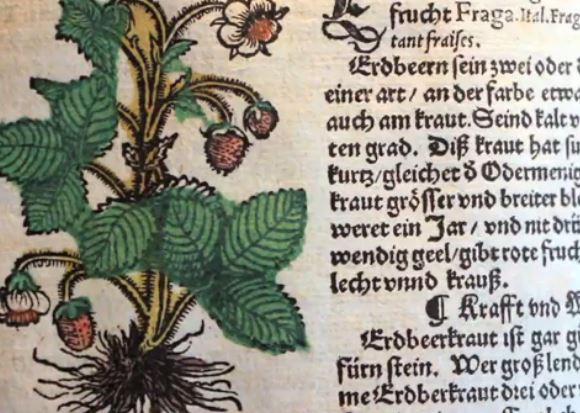 frucht Fraga. Ital. Frag
tant fraises.
Erdbeern sein zwei oder d
einer art/ an der farbe etwa
auch am kraut. Seind kalt v
ten grad. Diß kraut hat su
kurtz/gleichet d Odermenig
kraut grösser vnd breiter ble
weret ein Jar/ vnd mt drü
wendig geel/gibt rote fruch
lecht vnnd krauß.
¶ Krafft vnd W
Erdbeerkraut ist gar gu
fürn stein. Wer groß lend
me Erdberkraut drei oder